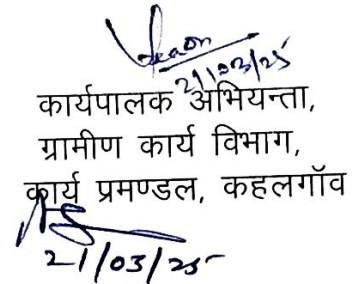 21/03/25
कार्यपालक अभियन्ता,
ग्रामीण कार्य विभाग,
कार्य प्रमण्डल, कहलगॉव
21/03/25